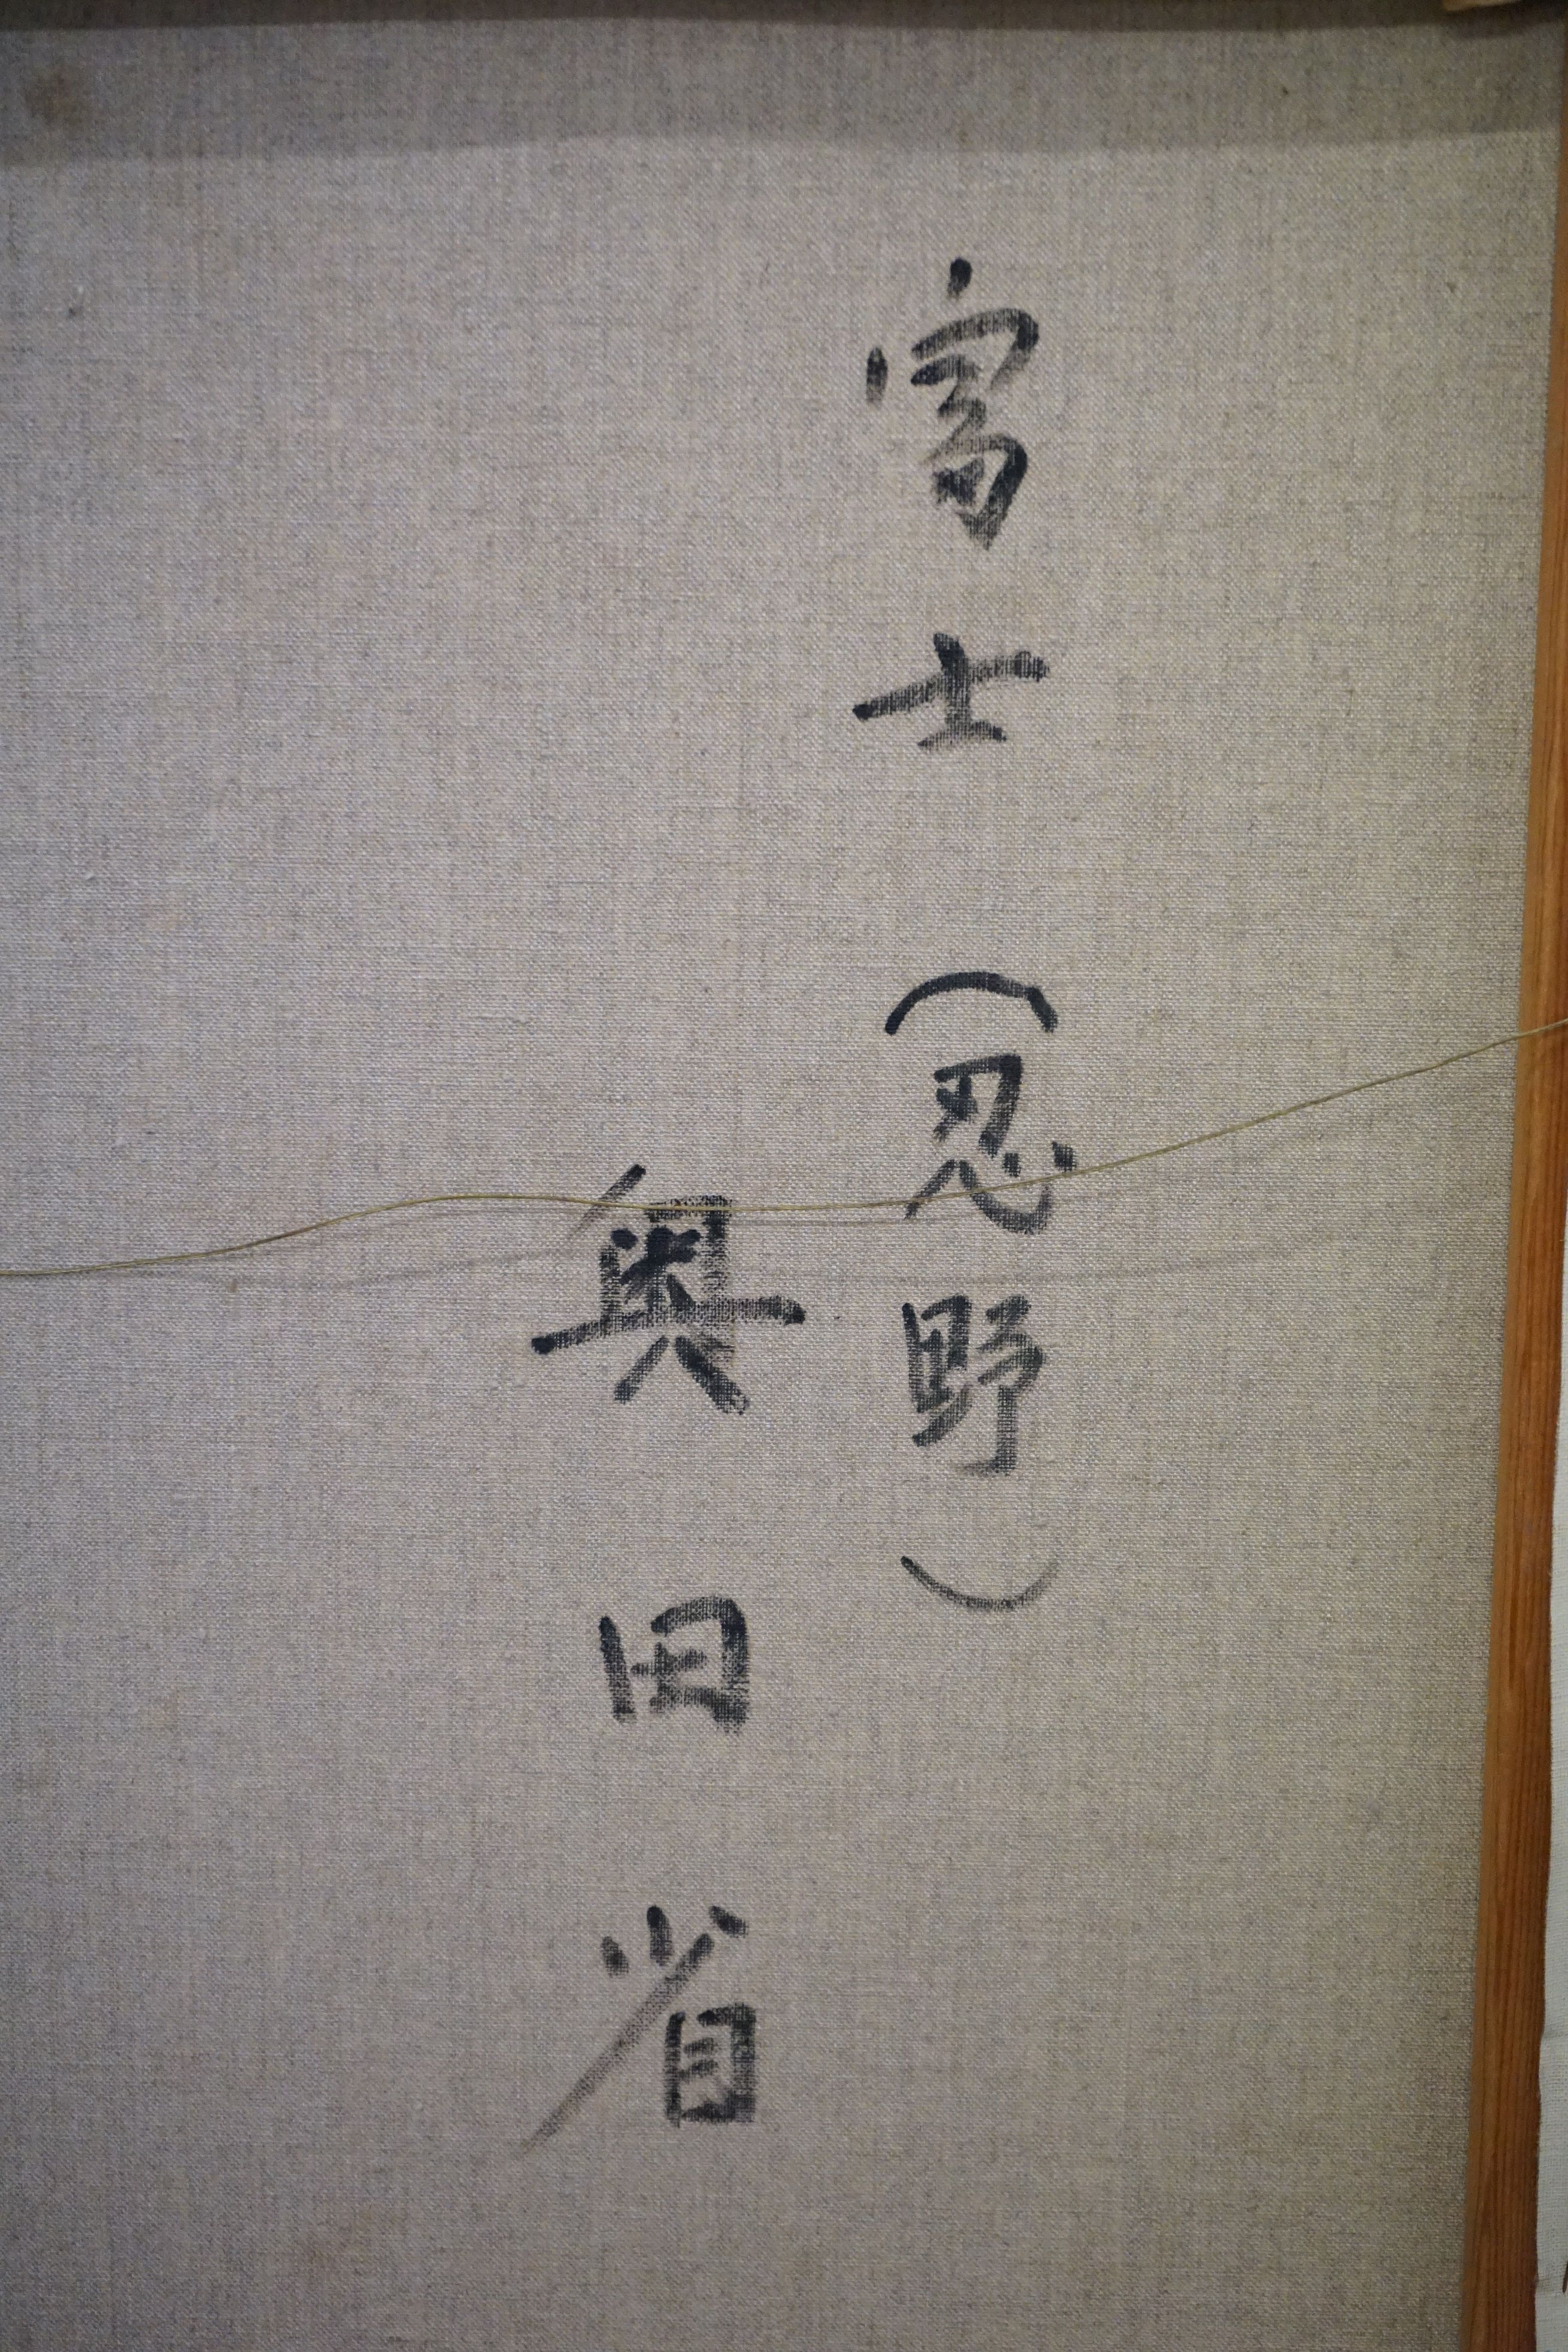 富士（忍野）
奥田省